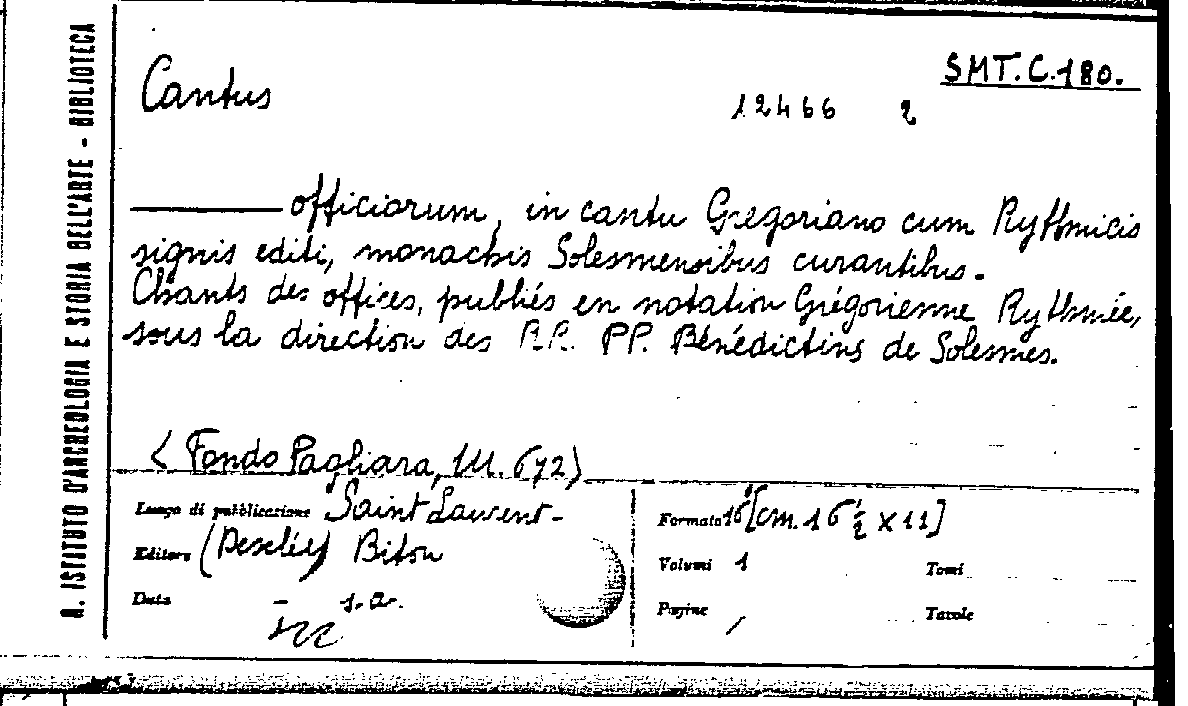 R. ISTITUTO D'ARCHEOLOGIA E STORIA DELL'ARTE - BIBLIOTECA
SMT.C.180.
Cantus
12466 2
officiorum, in cantu Gregoriano cum Rythmicis
signis editi, monachis Solesmensibus curantibus.
Chants des offices, publiés en notation Grégorienne Rythmée,
sous la direction des R.R. PP. Bénédictins de Solesmes.
(Fondo Pagliara, M. 672)
Luogo di pubblicazione Saint Laurent-
Editore (Desclée) Biton
Data - s.a.
Formato 16° [cm. 16 ½ x 11]
Volumi 1 Tomi
Pagine / Tavole